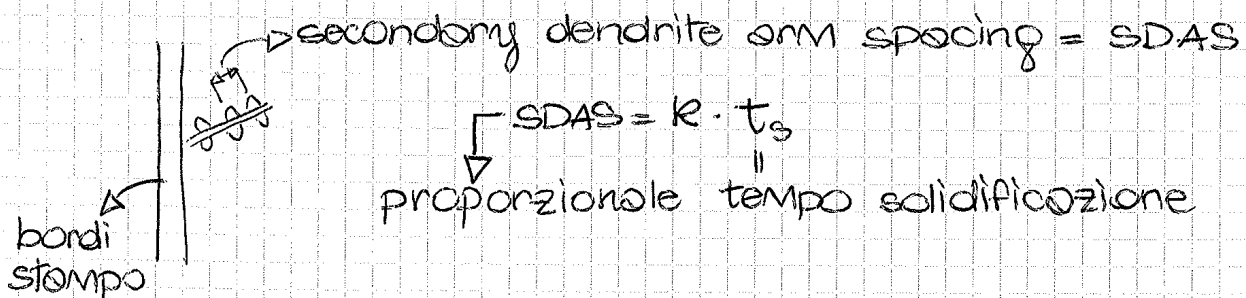 secondary dendrite arm spacing = SDAS
SDAS = K · ts
=
proporzionale tempo solidificazione
bordi
stampo